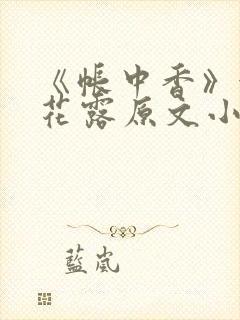 《帐中香》
花露原文小
蓝岚